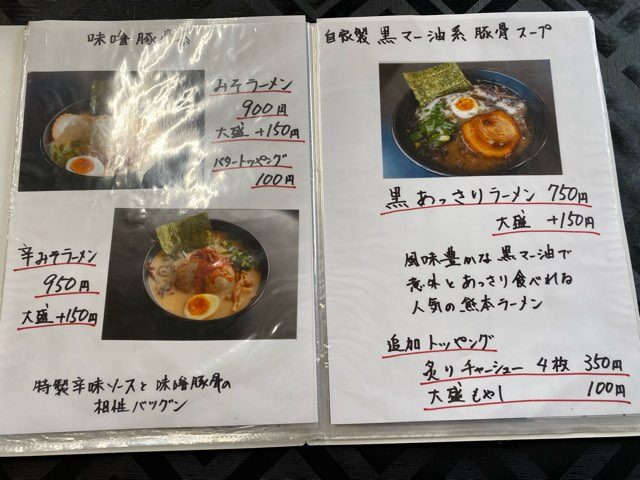 味噌豚骨
みそラーメン
900円
大盛 +150円
バタートッピング
100円
辛みそラーメン
950円
大盛 +150円
特製辛味ソースと味噌豚骨の
相性バツグン
自家製 黒マー油系 豚骨スープ
黒あっさりラーメン 750円
大盛 +150円
風味豊かな黒マー油で
意外とあっさり食べれる
人気の熊本ラーメン
追加トッピング
炙りチャーシュー 4枚 350円
大盛もやし 100円